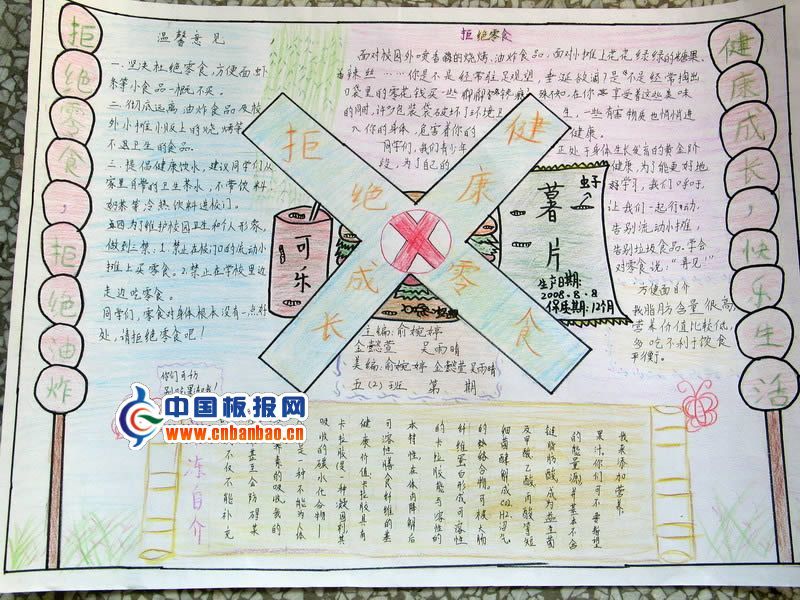 拒绝零食，拒绝油炸
温馨意见
一.坚决杜绝零食,方便面虾
条等小食品一概不买。
二.彻底远离油炸食品及校
外小摊小贩上的烧烤等
不退卫生的食品。
三.提倡健康饮水,建议同学们从
家里自带的卫生茶水,不带饮料
奶茶等冷热饮料进校门。
四.为了维护校园卫生和个人形象,
做到三禁:1.禁止在校门口的流动小
摊上买零食.2.禁止在学校里边
走边吃零食.
同学们,零食对身体根本没有一点好
处,请拒绝零食吧!
拒绝零食
面对校园外喷香的烧烤.油炸食品,面对小摊上花花绿绿的糖果、
辣丝……你是不是经常往足观望
口袋里的零花钱买一些
的同时,许多包装袋破坏了环境卫生,一些有害物质也悄悄进
入你的身体,危害着你的健康。
同学们,我们青少年正处于身体生长发育的黄金阶
段,为了自己的健康,为了能更好地
学习,我们
让我们一起行动,
告别流动小摊,
告别垃圾食品.学会
对零食说:“再见!”
方便面自介
我脂肪含量很高,
营养价值比较低,
多吃不利于饮食
平衡。
拒绝零食
健康成长
可乐
薯片
虫子
生产日期:
2008.8.8
保质期:12个月
主编:俞婉婷
金懿萱 吴雨晴
美编:俞婉婷 金懿萱 吴雨晴
五(2)班 第 期
健康成长，快乐生活
中国板报网
www.cnbanbao.cn
我来添加营养,
果汁.你们可不要希望
的能量源,并基本不含
链脂肪酸,成为益生菌
及甲酸乙酸丙酸等短
细菌酵解成CO2.H2.沼气
的络合物,可被人肠
纤维蛋白形成可溶性
的卡拉胶能与溶性的
水特性,在体内降解后
可溶性膳食纤维的基
健康价值.卡拉胶具有
卡拉胶是一种凝固剂,其
吸收的碳水化合物—
是一种不能为人体
养素的吸收.我的
甚至会防碍某
不仅不能补充
冻自介